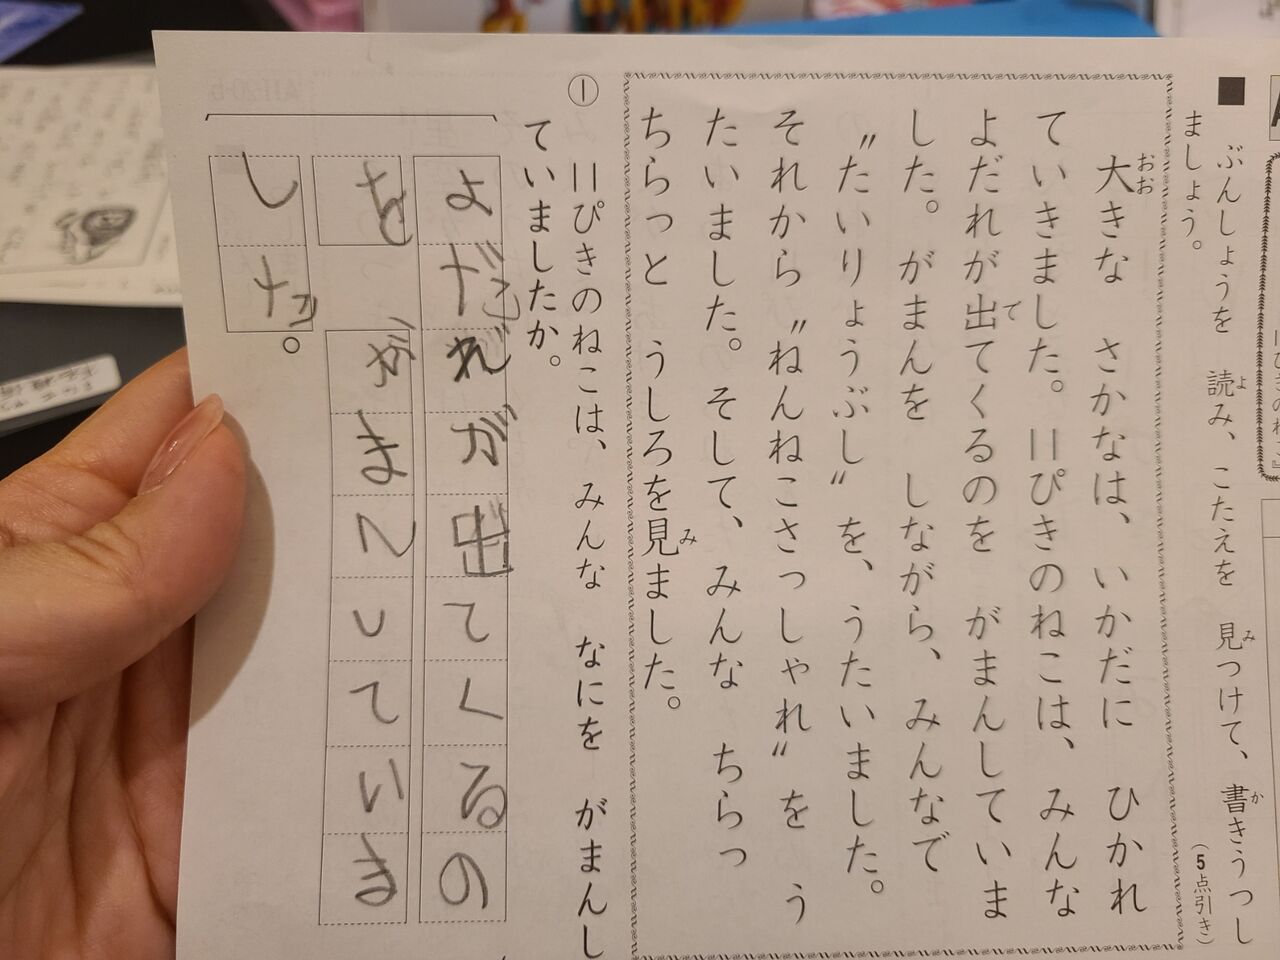 ぶんしょうを 読み、こたえを 見つけて、書きうつし
ましょう。
(5点引き)
大きな さかなは、いかだに ひかれ
ていきました。11ぴきのねこは、みんな
よだれが出てくるのを がまんしていま
した。がまんを しながら、みんなで
〝たいりょうぶし〟を、うたいました。
それから〝ねんねこさっしゃれ〟を う
たいました。そして、みんな ちらっ
ちらっと うしろを見ました。
① 11ぴきのねこは、みんな なにを がまんし
ていましたか。
よだれが出てくるの
を がまんしていま
した。